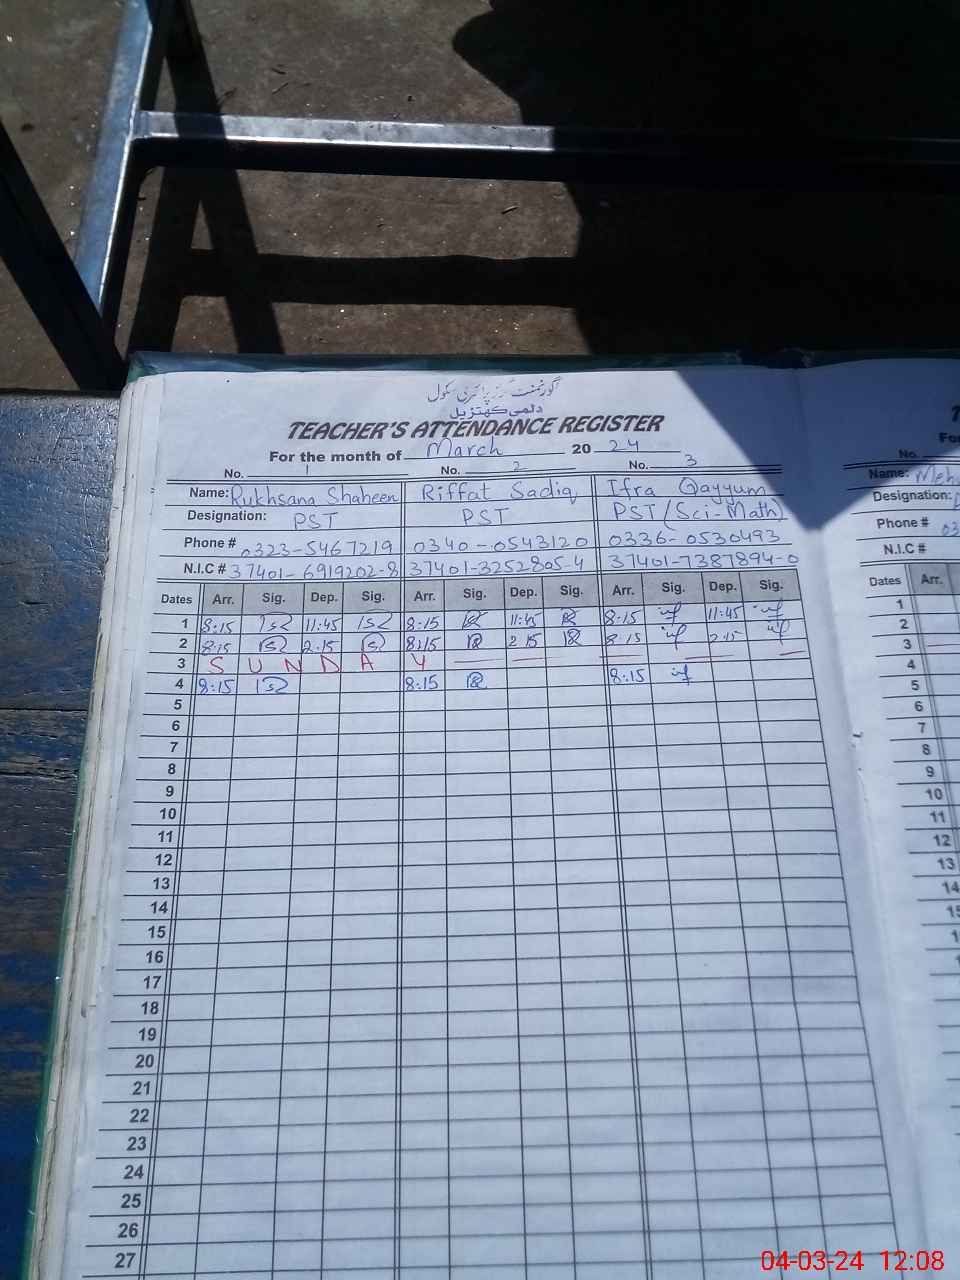 گورنمنٹ گرلز پرائمری سکول
دلمی کھتڑیل
TEACHER'S ATTENDANCE REGISTER
For the month of March 20 24
No. 1 No. 2 No. 3
Name: Rukhsana Shaheen Riffat Sadiq Ifra Qayyum
Designation: PST PST PST (Sci-Math)
Phone # 0323-5467219 0340-0543120 0336-0530493
N.I.C # 37401-6919202-8 37401-3252805-4 37401-7387894-0
Dates Arr. Sig. Dep. Sig. Arr. Sig. Dep. Sig. Arr. Sig. Dep. Sig.
1 8:15 11:45 8:15 11:45 8:15 11:45
2 8:15 2:15 8:15 2:15 8:15 2:15
3 SUNDAY
4 8:15 8:15 8:15
5
6
7
8
9
10
11
12
13
14
15
16
17
18
19
20
21
22
23
24
25
26
27
No.
Name: Meh
Designation:
Phone # 03
N.I.C #
Dates Arr.
1
2
3
4
5
6
7
8
9
10
11
12
13
14
15
04-03-24 12:08